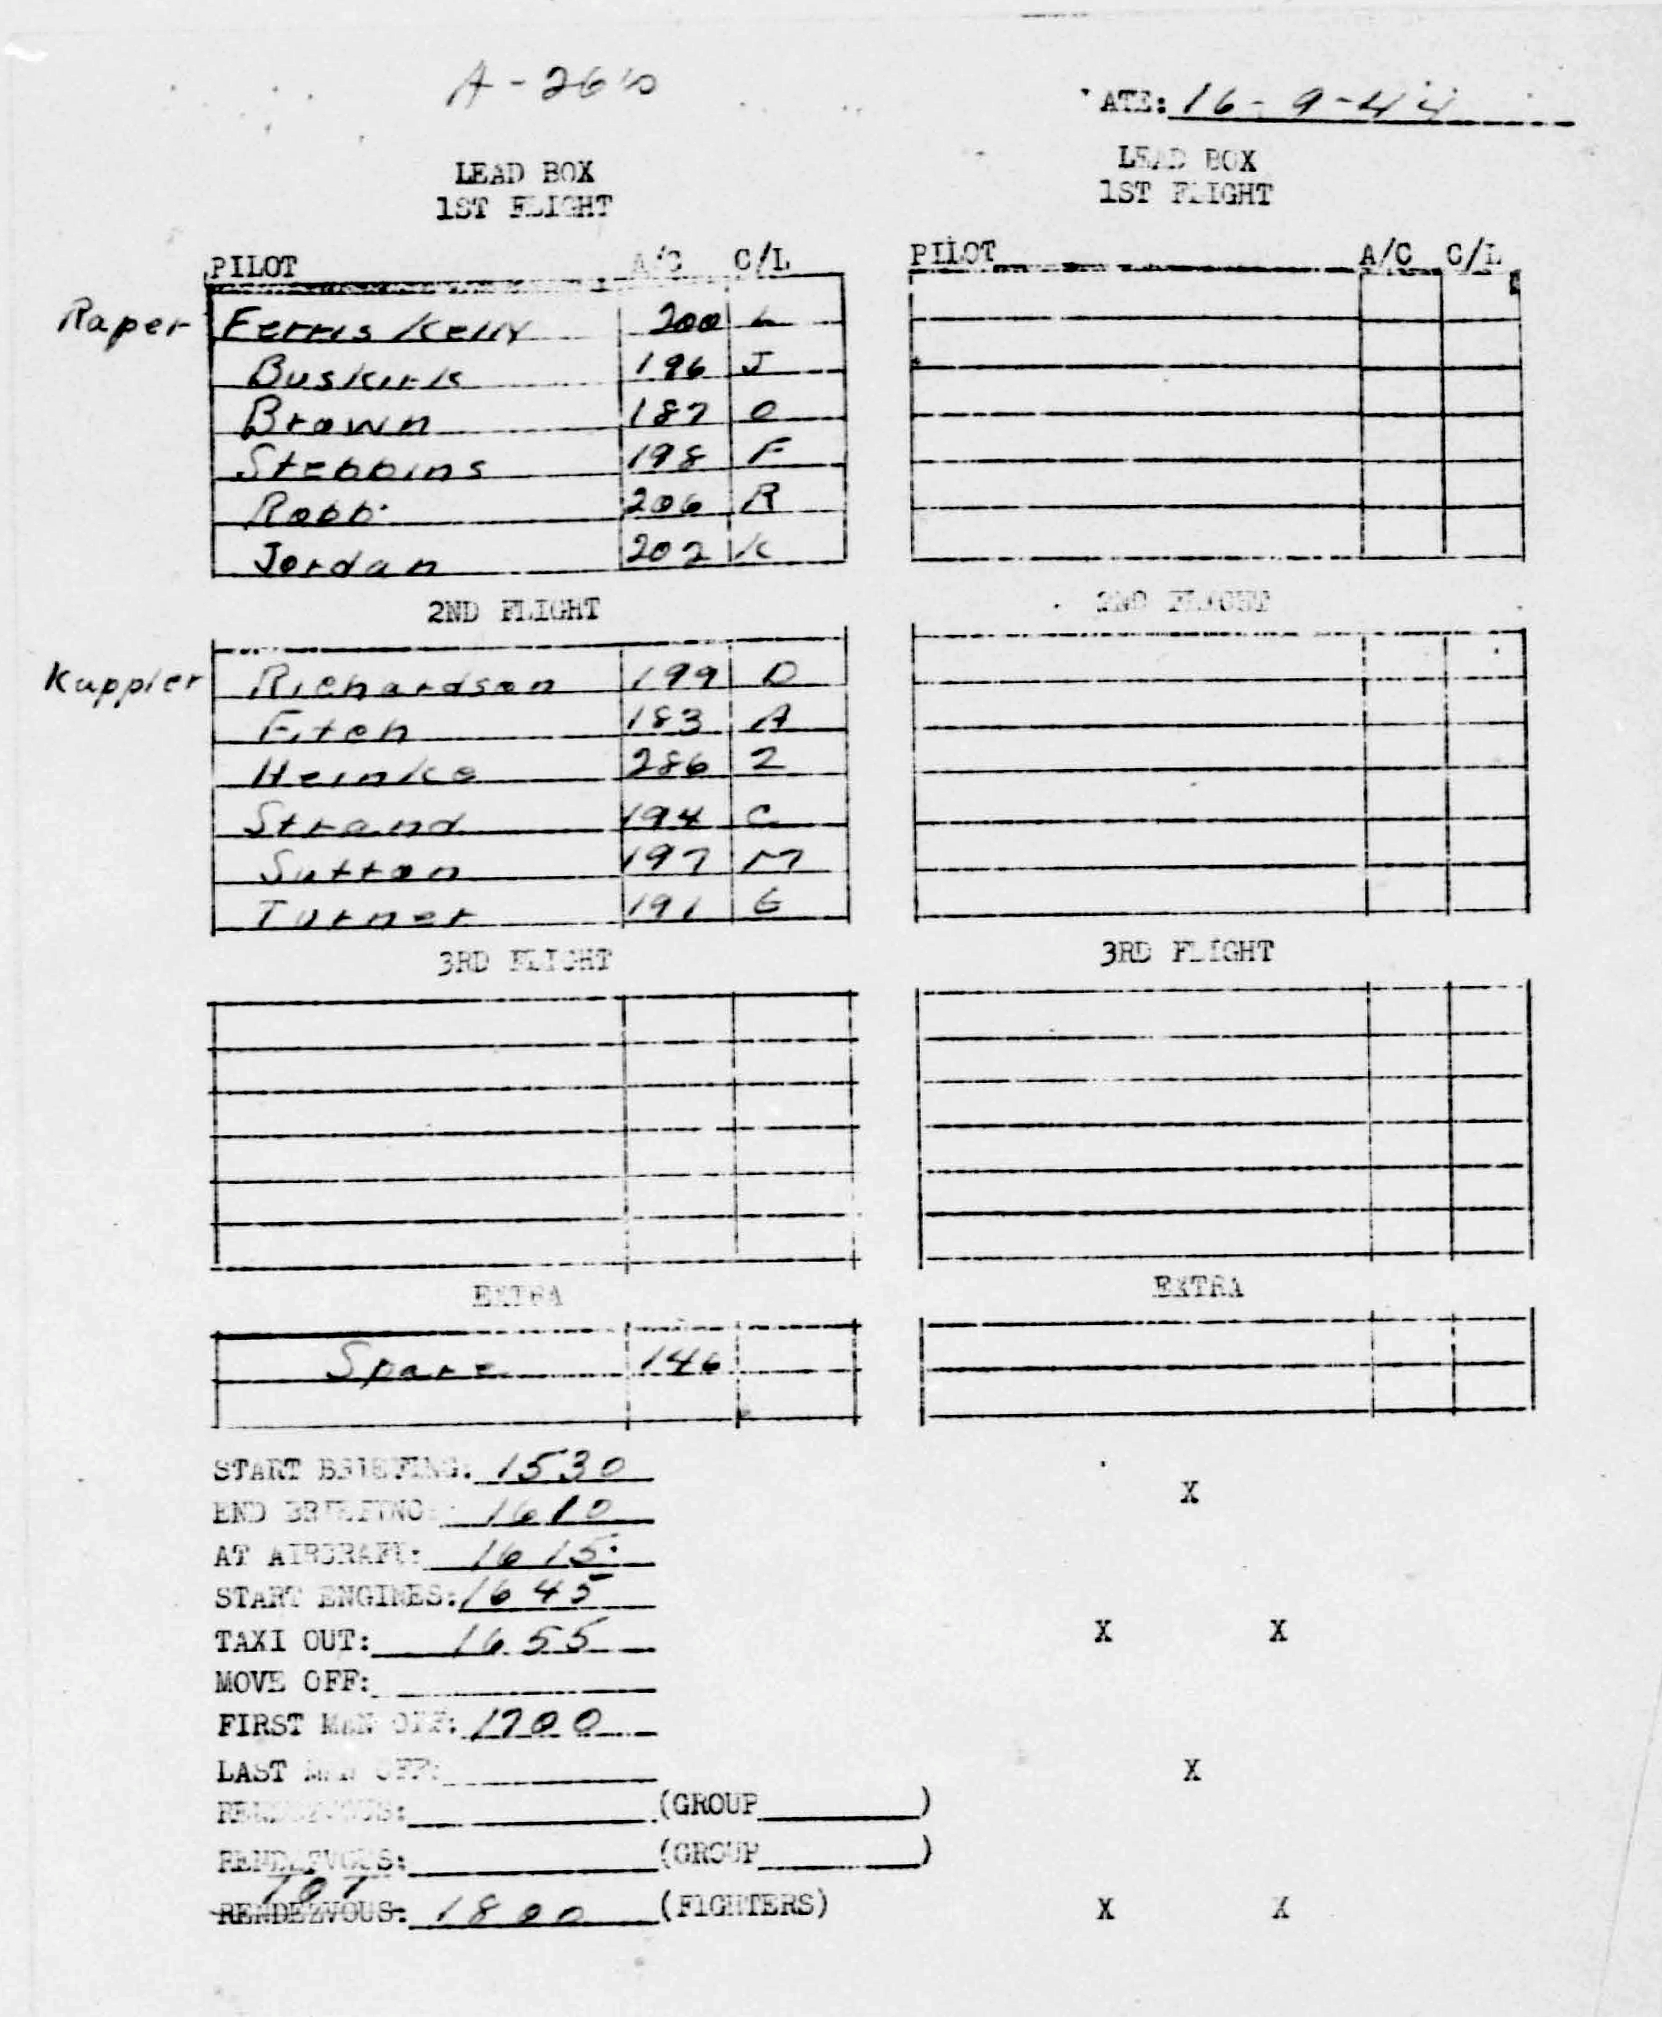 A-26's
ATE: 16-9-44
LEAD BOX
1ST FLIGHT
PILOT A/C C/L
Raper Ferris Kelly 200 L
Buskirk 196 J
Brown 187 O
Stebbins 198 F
Robb 206 R
Jordan 202 K
2ND FLIGHT
Kuppler Richardson 199 D
Fitch 183 A
Heinke 286 Z
Strand 194 C
Sutton 197 M
Turner 191 G
3RD FLIGHT
EXTRA
Spare 146
LEAD BOX
1ST FLIGHT
PILOT A/C C/L
2ND FLIGHT
3RD FLIGHT
EXTRA
START BRIEFING: 1530
END BRIEFING: 1610
AT AIRCRAFT: 1615
START ENGINES: 1645
TAXI OUT: 1655
MOVE OFF:
FIRST MAN OFF: 1700
LAST MAN OFF:
RENDEZVOUS: (GROUP )
RENDEZVOUS: (GROUP )
RENDEZVOUS: 1800 (FIGHTERS)
X
X X
X
X X